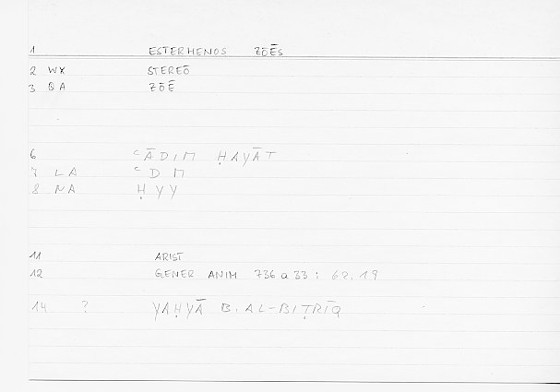 1 ESTERHENOS ZŌĒS
2 WX STEREŌ
3 QA ZŌĒ
6 ʿĀDIM ḤAYĀT
7 LA ʿDM
8 NA ḤYY
11 ARIST
12 GENER ANIM 736 a 33 : 62.19
14 ? YAḤYĀ B. AL-BIṬRĪQ